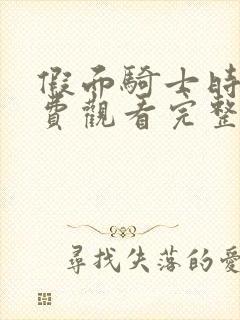 假面騎士時
費觀看完整
尋找失落的愛